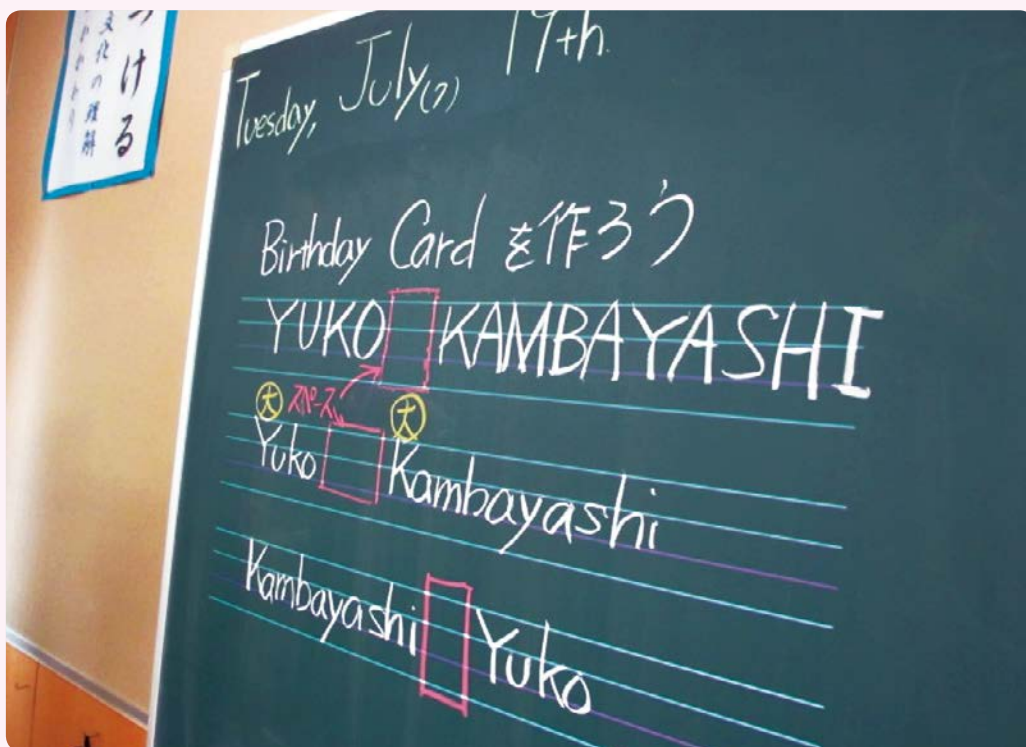 つける
文化の理解
Tuesday, July(7) 19th.
Birthday Card を作ろう
YUKO KAMBAYASHI
大 スペース 大
Yuko Kambayashi
Kambayashi Yuko